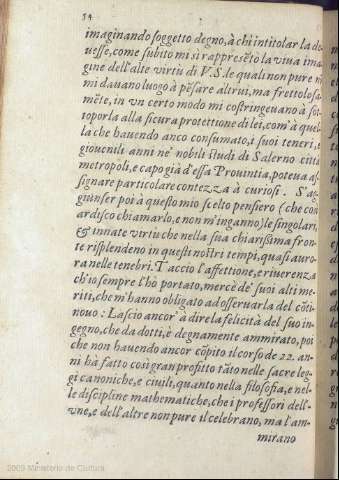 54
imaginando soggetto degno, à chi intitolar la do
uesse, come subito mi si rappresẽtò la viua ima
gine dell'alte virtù di V. S. le quali non pure n
mi dauano luogo à pẽsare altrui, ma frettolosa
mẽte, in vn certo modo mi costringeuano à sot
toporla alla sicura protettione di lei, com'à quel
la che hauendo anco consumato, i suoi teneri, e
giouenili anni ne' nobili studi di Salerno città
metropoli, e capo già d'essa Prouintia, poteua as
signare particolare contezza à curiosi. S'ag
giunser poi à questo mio scelto pensiero (che con
ardisco chiamarlo, e non m'inganno) le singolari,
& innate virtù che nella sua chiarissima fron
te risplendeno in questi nostri tempi, quasi auro
ra nelle tenebri. Taccio l'affettione, e riuerenza
ch'io sempre l'ho portato, mercè de' suoi alti me
riti, che m'hanno obligato ad osseruarla del cõti
nouo: Lascio ancor' à dire la felicità del suo in-
gegno, che da dotti, è degnamente ammirato, poi
che non hauendo ancor cõpito il corso de 22. an-
ni hà fatto così gran profitto tãto nelle sacre leg
gi canoniche, e ciuili, quanto nella filosofia, e nel-
le discipline mathematiche, che i professori dell'-
vne, e dell'altre non pure il celebrano, ma l'am-
mirano
2009 Ministerio de Cultura